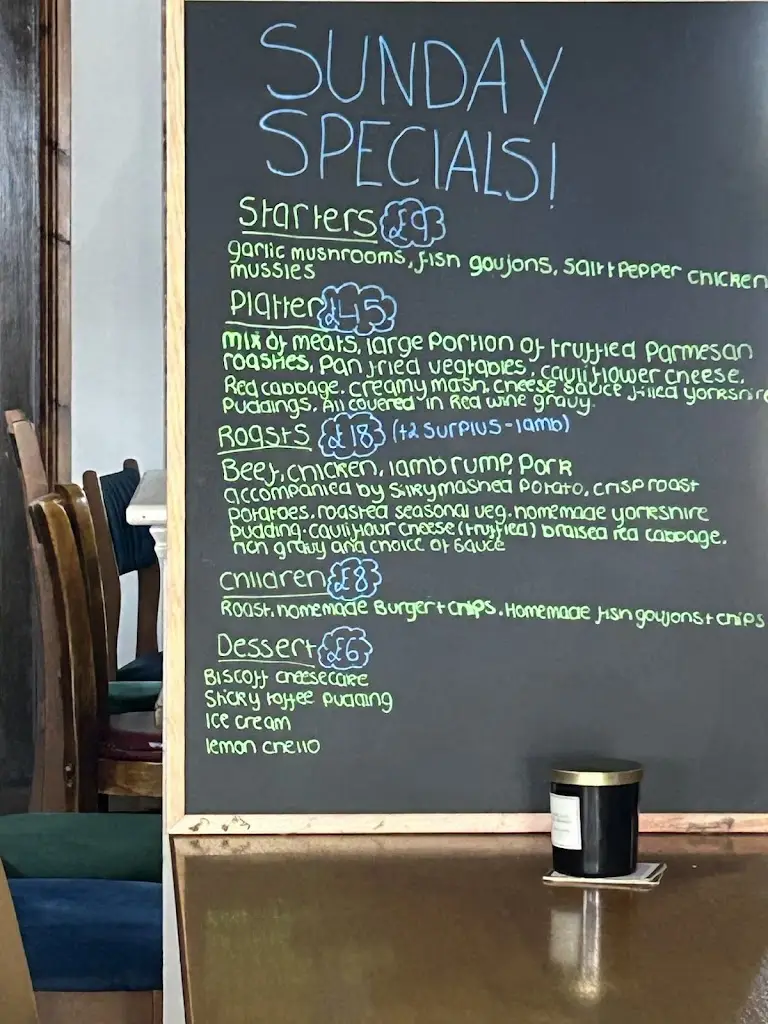 SUNDAY
SPECIALS!
Starters £9
garlic mushrooms, fish goujons, Salt + Pepper chicken
mussles
Platter £45
mix of meats, large portion of truffled Parmesan
roasties, Pan fried vegtables, cauliflower cheese,
Red cabbage, creamy mash, cheese sauce filled yorkshire
Puddings. All covered in Red wine gravy.
Roasts £18 (+2 surplus - lamb)
Beef, chicken, lamb rump, Pork
accompanied by Silky mashed potato, crisp roast
potatoes, roasted seasonal veg, homemade yorkshire
pudding, cauliflour cheese (truffled) braised red cabbage,
rich gravy and choice of sauce
children £8
Roast, homemade Burger + chips, Homemade fish goujons + chips
Dessert £6
Biscoff cheesecake
Sticky toffee pudding
Ice cream
lemon chello